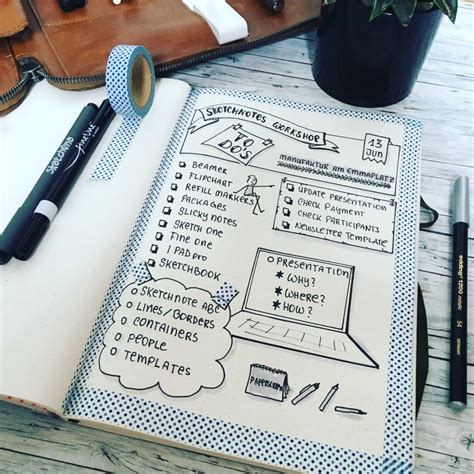 SKETCHNOTES WORKSHOP
13
JUN
TO
DOS
MANUFAKTUR AM EMMAPLATZ
BEAMER
FLIPCHART
REFILL MARKERS
PACKAGES
SLICKY NOTES
SKETCH ONE
FINE ONE
I PAD PRO
SKETCHBOOK
UPDATE PRESENTATION
CHECK PAYMENT
CHECK PARTICIPANTS
NEWSLETTER TEMPLATE
PRESENTATION
* WHY?
* WHERE?
* HOW?
SKETCHNOTE ABC
LINES/BORDERS
CONTAINERS
PEOPLE
TEMPLATES
SKETCHNOTE
fine one
edding 1200 metallic
54